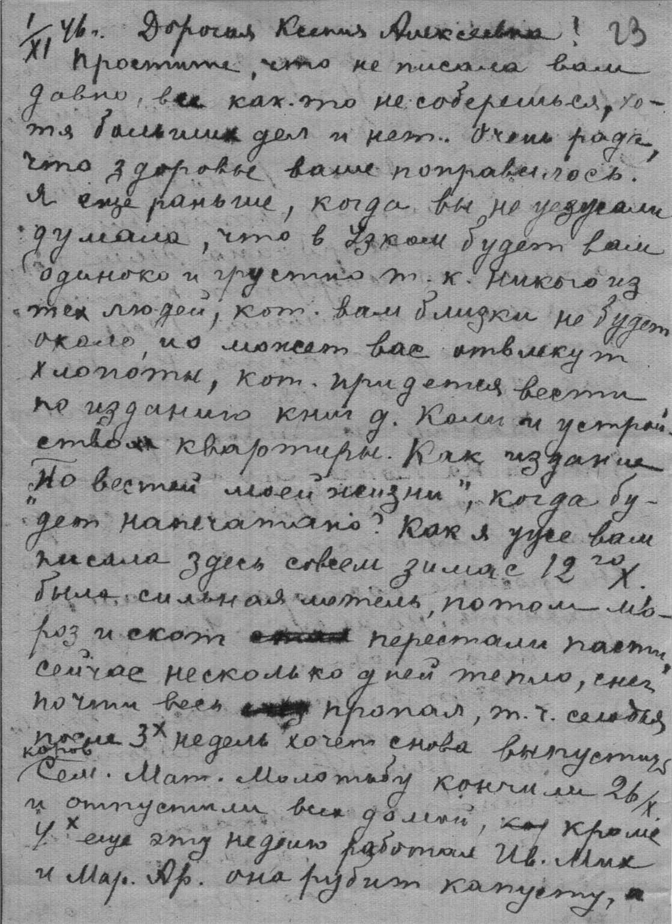 1/XI 46 г. Дорогая Ксения Алексеевна! 23
Простите, что не писала вам
давно, все как-то не соберешься, хо-
тя больших дел и нет. Очень рада,
что здоровье ваше поправилось.
Я еще раньше, когда вы не уезжали
думала, что в Узком будет вам
одиноко и грустно т.к. никого из
тех людей, кот. вам близки не будет
около, но может вас отвлекут
хлопоты, кот. придется вести
по изданию книг д. Коли и устрой-
ством квартиры. Как издание
"Повестей моей жизни", когда бу-
дет напечатано? Как я уже вам
писала здесь совсем зима с 12го X.
была сильная метель, потом мо-
роз и скот перестали пасти,
сейчас несколько дней тепло, снег
почти весь пропал, т.ч. сегодня
после 3х недель хочет снова выпустить
коров
Сем. Мат. Молотьбу кончили 26/X.
и отпустили всех домой, кроме
4х еще эту неделю работал Ив. Мих
и Мар. Ар. она рубит капусту, а